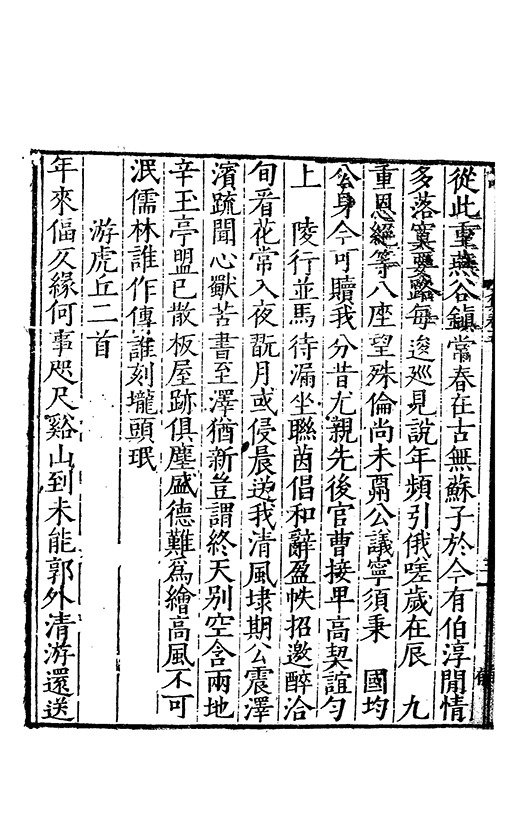 從此重燕谷鎮常春在古無蘇子於今有伯淳閒情
多落寞要路每逡巡見說年頻引俄嗟歲在辰　九
重恩絕等八座望殊倫尚未鬲公議寧須秉　國均
公身今可贖我分昔尤親先後官曹接卑高契誼勻
上　陵行並馬待漏坐聯茵倡和辭盈帙招邀醉洽
旬看花常入夜翫月或侵晨送我清風埭期公震澤
濱疏聞心獸苦書至澤猶新豈謂終天別空含兩地
辛玉亭盟已散板屋跡俱塵盛德難為繪高風不可
泯儒林誰作傳誰刻壠頭珉
游虎丘二首
年來偪仄緣何事咫尺谿山到未能郭外清游還送